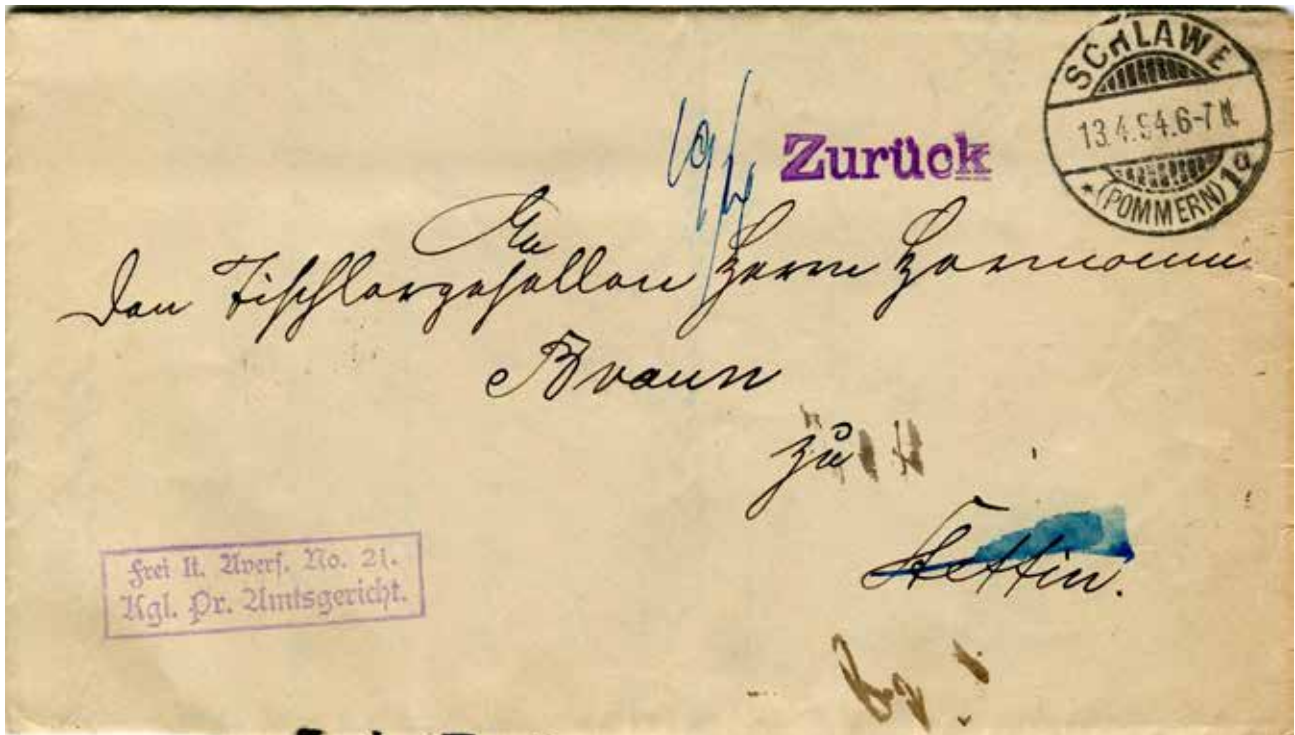 SCHLAWE
13.4.94.6-7N.
* (POMMERN) 1a
Zurück
19/4
An
den Tischlergesellen Herrn Hermann
Braun
zu
Stettin.
Frei lt. Avers. No. 21.
Kgl. Pr. Amtsgericht.